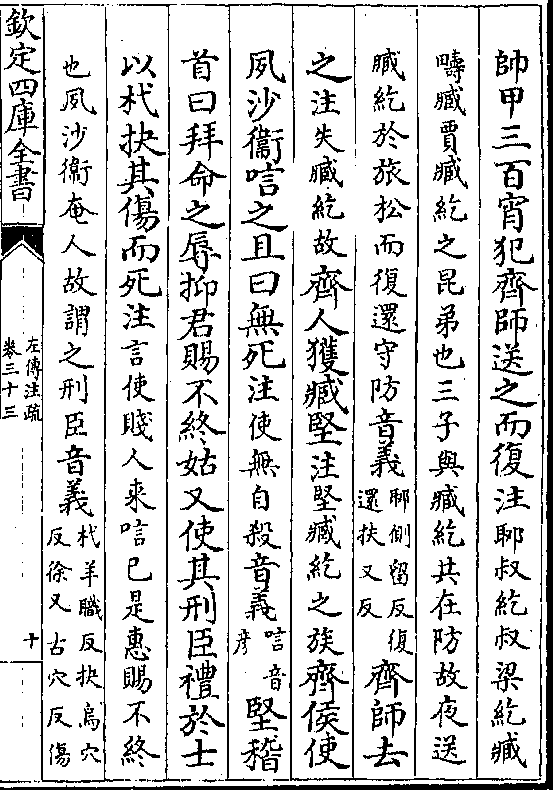 帥甲三百宵犯齊師送之而復注耶叔紇叔梁紇臧
疇臧賈臧紇之昆弟也三子與臧紇共在防故夜送
臧紇於旅松而復還守防音義耶側留反復
還扶又反齊師去
之注失臧紇故齊人獲臧堅注堅臧紇之族齊侯使
夙沙衞唁之且曰無死注使無自殺音義唁音
彦堅稽
首曰拜命之辱抑君賜不終姑又使其刑臣禮於士
以杙抉其傷而死注言使賤人來唁已是惠賜不終
也夙沙衞奄人故謂之刑臣音義杙羊職反抉烏穴
反徐又古穴反傷
欽定四庫全書
左傳注疏
卷三十三
十